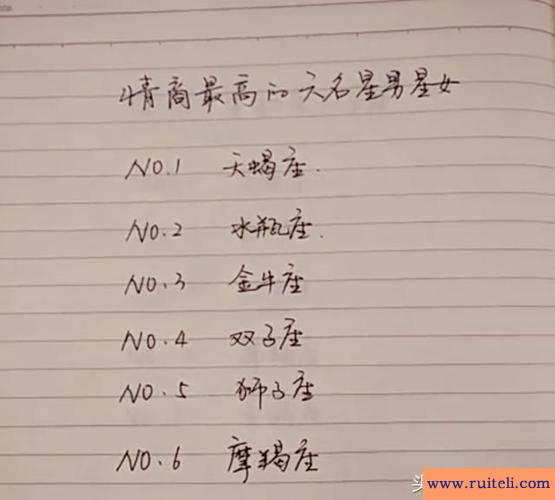 情商最高的六名星男星女
NO.1 天蝎座.
NO.2 水瓶座.
NO.3 金牛座
NO.4 双子座
NO.5 狮子座
NO.6 摩羯座
头
www.ruiteli.com